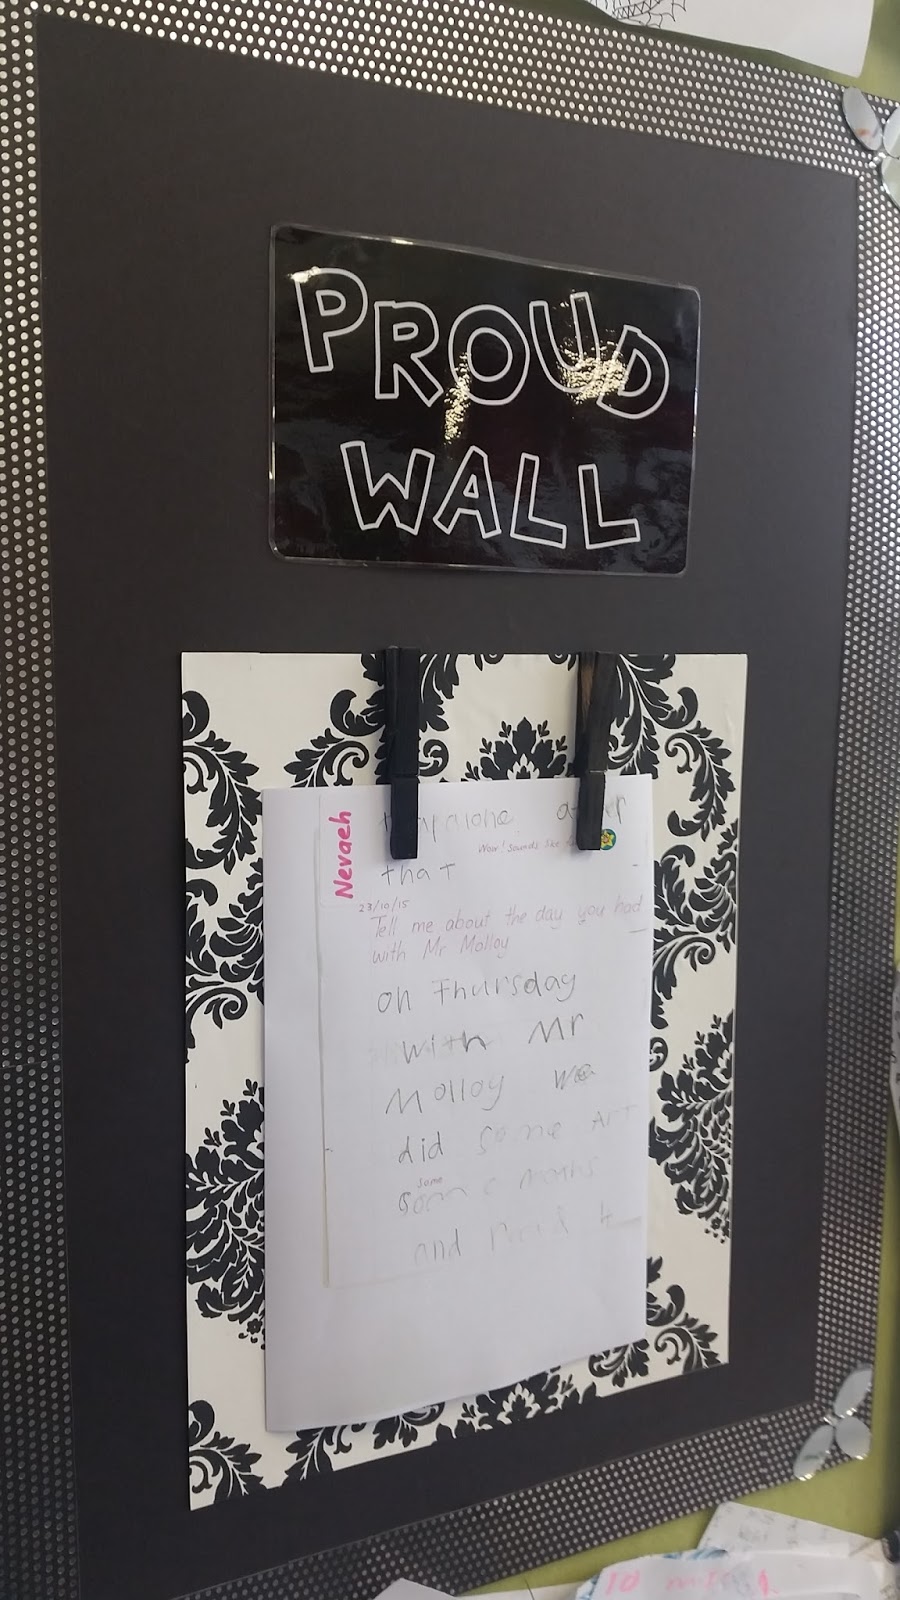 PROUD
WALL
Nevaeh
Wow! Sounds like
that
23/10/15
Tell me about the day you had
with Mr Molloy
on Thursday
with Mr
Molloy We
did some Art
some
some maths
and
10